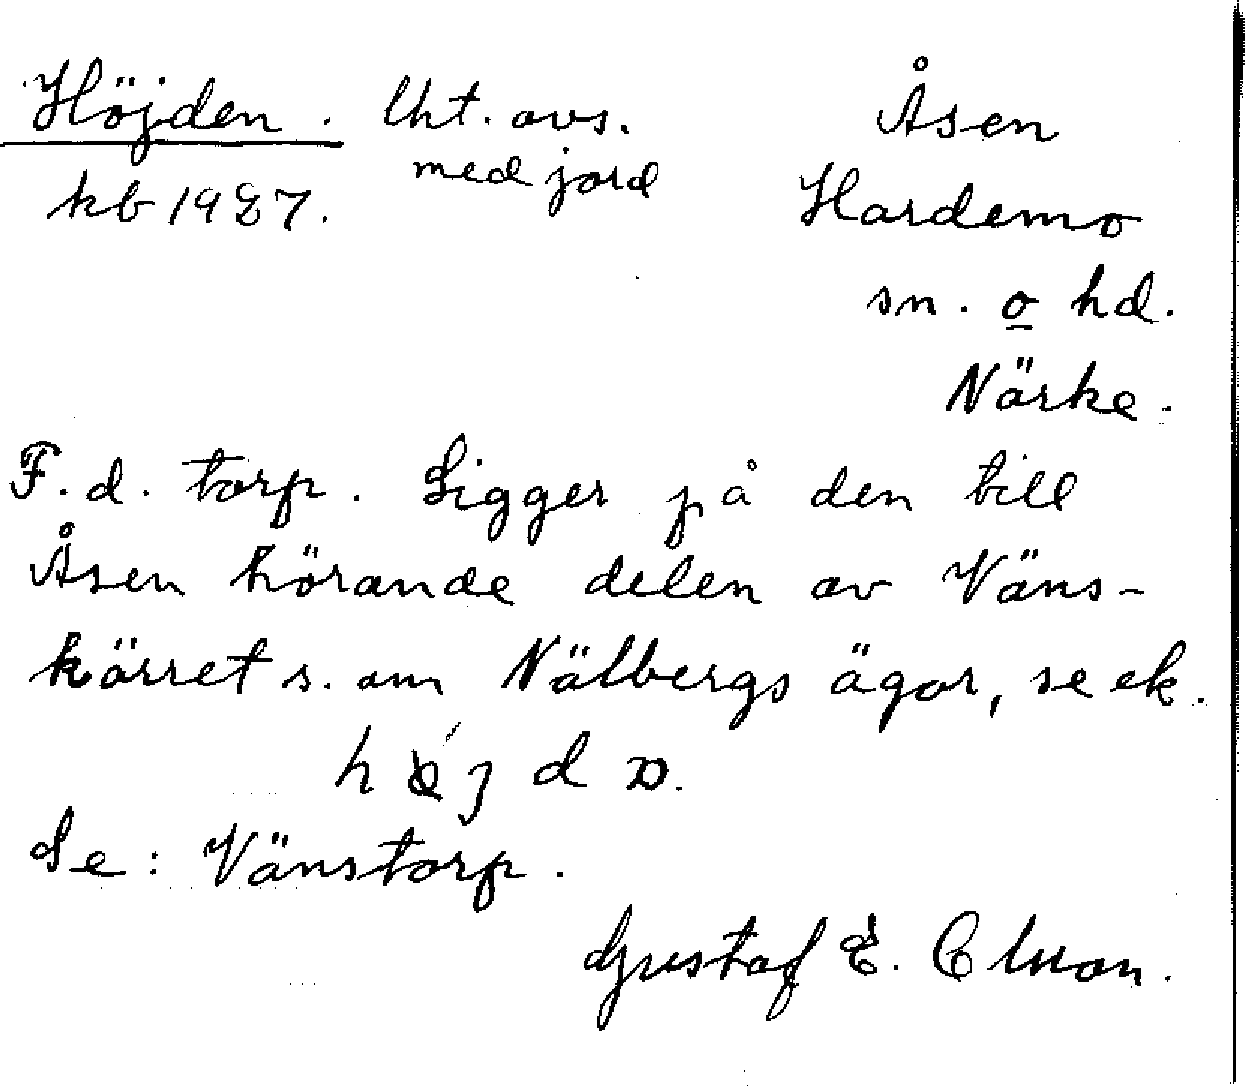 Höjden. Uht. avs.
med jord
kb 1927.
Åsen
Hardemo
sn. o hd.
Närke.
F.d. torp. Ligger på den till
Åsen hörande delen av Väns-
kärret s. om Nälbergs ägor, se ek.
Se: Vänstorp.
Gustaf E.